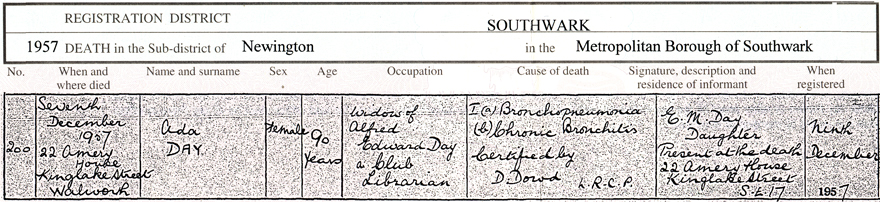 REGISTRATION DISTRICT
SOUTHWARK
1957 DEATH in the Sub-district of Newington in the Metropolitan Borough of Southwark
No.
When and
where died
Name and surname
Sex
Age
Occupation
Cause of death
Signature, description and
residence of informant
When
registered
200
Seventh
December
1957
22 Amery
House
Kinglake Street
Walworth
Ada
DAY
Female
90
years
Widow of
Alfred
Edward Day
a Club
Librarian
I(a) Bronchopneumonia
(b) Chronic Bronchitis
Certified by
D. Dowd L.R.C.P.
E. M. Day
Daughter
Present at the death
22 Amery House
Kinglake Street
S.E.17
Ninth
December
1957